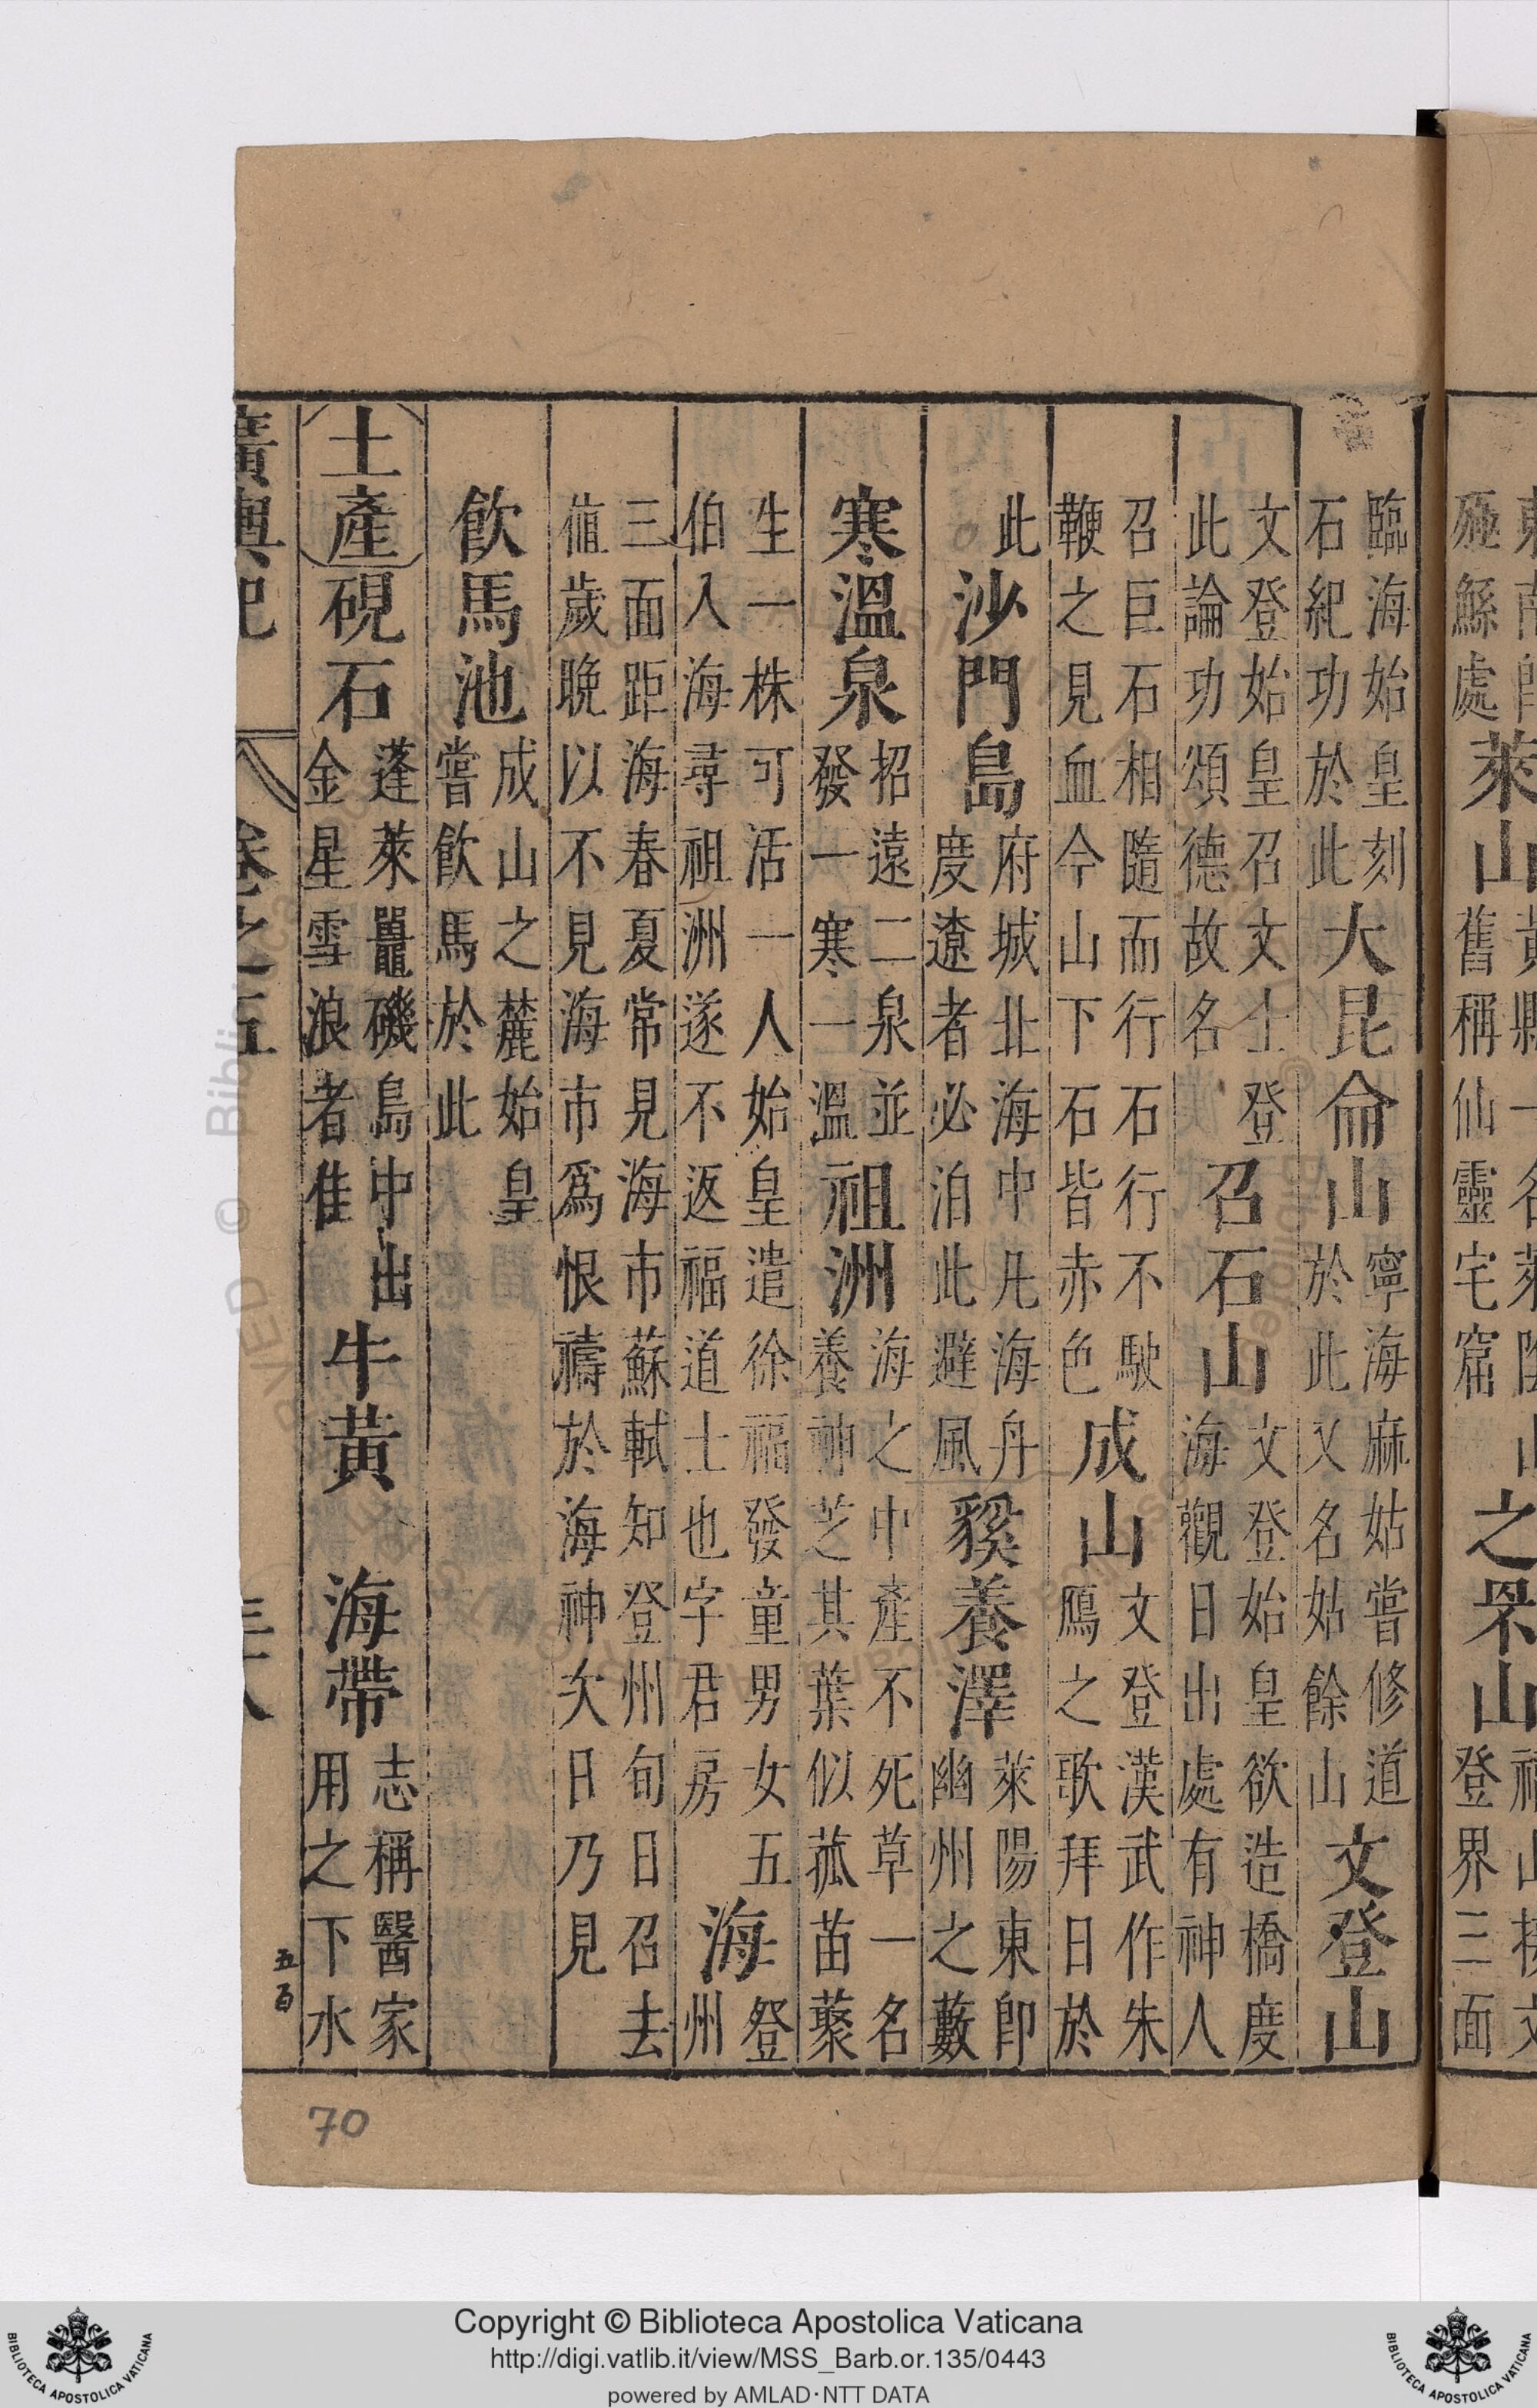 殛鯀處 萊山 黃縣一名萊陰山舊稱仙靈宅窟 之罘山 福山接文登界三面
臨海始皇刻石紀功於此 大昆侖山 寧海麻姑嘗修道於此又名姑餘山 文登山
文登始皇召文士登此論功頌德故名 召石山 文登始皇欲造橋度海觀日出處有神人
召巨石相隨而行石行不駛鞭之見血今山下石皆赤色 成山 文登漢武作朱鴈之歌拜日於
此 沙門島 府城北海中凡海舟度遼者必泊此避風 貕養澤 萊陽東即幽州之藪
寒溫泉 招遠二泉並發一寒一溫 祖洲 海之中產不死草一名養神芝其葉似菰苗藂
生一株可活一人始皇遣徐福發童男女五伯入海尋祖洲遂不返福道士也字君房 海 登州
三面距海春夏常見海市蘇軾知登州旬日召去値歲晚以不見海市爲恨禱於海神次日乃見
飲馬池 成山之麓始皇嘗飲馬於此
土產 硯石 蓬萊鼉磯島中出金星雪浪者佳 牛黃 海帶 志稱醫家用之下水
廣輿記 卷之五 三十八
五百
70
Copyright © Biblioteca Apostolica Vaticana
http://digi.vatlib.it/view/MSS_Barb.or.135/0443
powered by AMLAD·NTT DATA
BIBLIOTECA APOSTOLICA VATICANA
BIBLIOTECA APOSTOLICA VATICANA